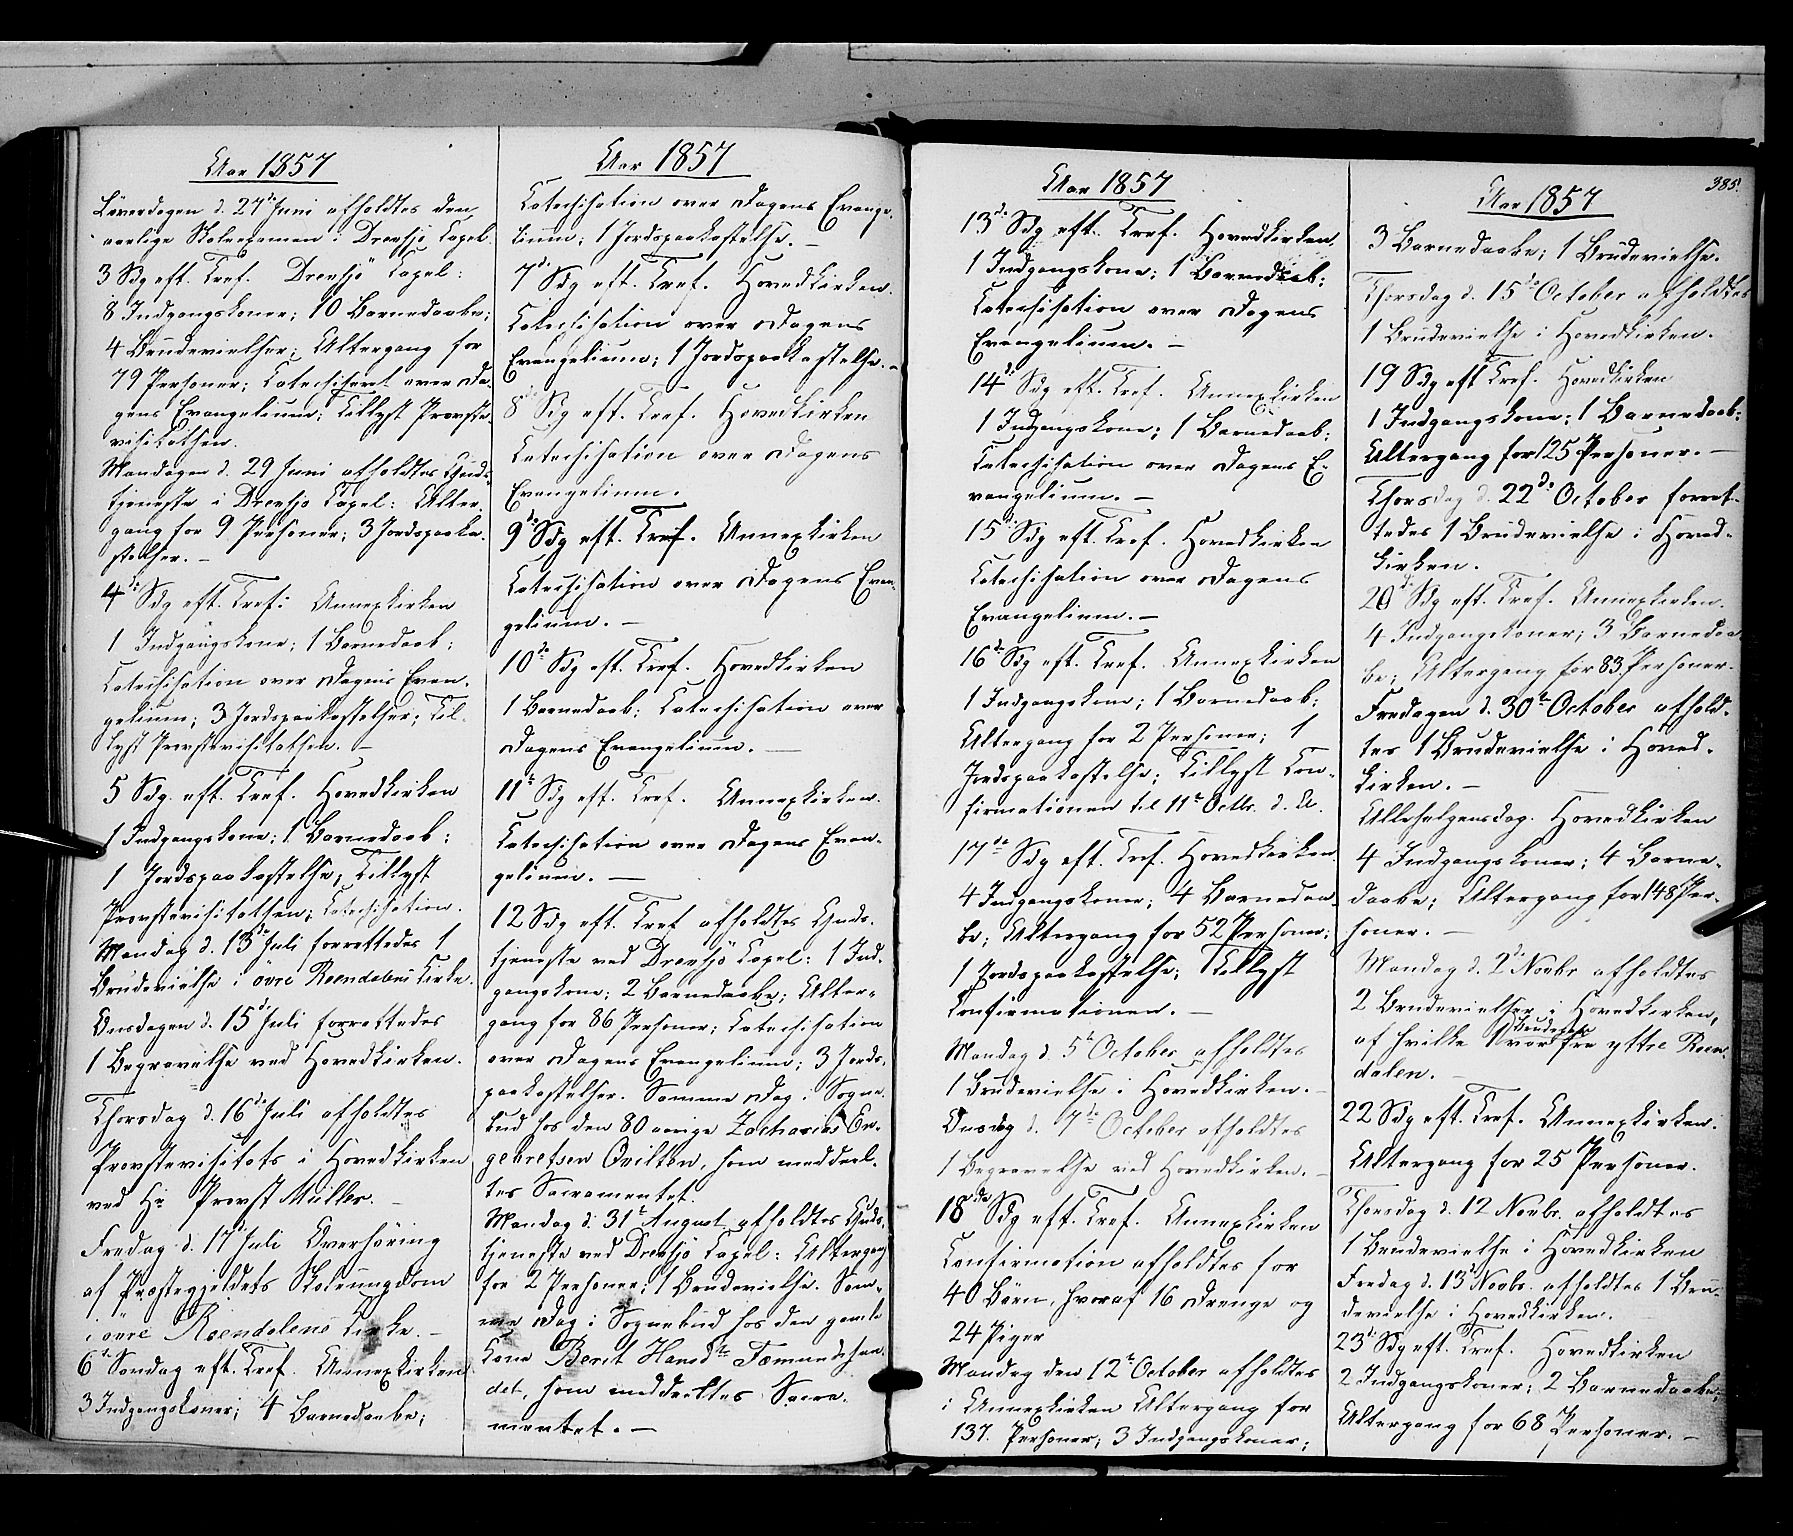 Aar 1857
Løverdagen d. 27de Juni afholdtes den
aarlige Skoleexamen i Drevsjø Capel.
3 Sdg eft. Tref. Drevsjö Capel:
8 Indgangskoner; 10 Barnedaabe;
4 Brudevielser; Altergang for
79 Personer; Catechiseret over Da-
gens Evangelium; Tillyst Provste-
visitatsen.
Mandagen d. 29 Juni afholdtes Guds-
tjeneste i Drevsjø Capel: Alter-
gang for 9 Personer; 3 Jordspaaka-
stelser. –
4de Sdg eft. Tref: Annexkirken
1 Indgangskone; 1 Barnedaab;
Catechisation over Dagens Evan-
gelium; 3 Jordspaakastelser; Til-
lyst Provstevisitatsen. –
5 Sdg. eft. Tref. Hovedkirken
1 Indgangskone; 1 Barnedaab;
1 Jordspaakastelse; Tillyst
Provstevisitatsen; Catechisation.
Mandag d. 13de Juli forrettedes 1
Brudevielse i övre Rendalens Kirke.
Onsdagen d. 15de Juli forrettedes
1 Begravelse ved Hovedkirken.
Thorsdag d. 16de Juli afholdtes
Provstevisitats i Hovedkirken
ved Hr Provst Müller. –
Fredag d. 17de Juli Overhøring
af Præstegjeldets Skoleungdom
i övre Rendalens Kirke. –
6te Søndag eft. Tref. Annexkirken
3 Indgangskoner; 4 Barnedaabe;
Aar 1857
Catechisation over Dagens Evange-
lium; 1 Jordspaakastelse. –
7de Sdg eft. Tref. Hovedkirken.
Catechisation over Dagens
Evangelium; 1 Jordspaakastelse. –
8de Sdg eft. Tref. Hovedkirken
Catechisation over Dagens
Evangelium.
9de Sdg eft. Tref. Annexkirken
Catechisation over Dagens Evan-
gelium. –
10de Sdg eft. Tref. Hovedkirken
1 Barnedaab; Catechisation over
Dagens Evangelium. –
11te Sdg eft. Tref. Annexkirken.
Catechisation over Dagens Evan-
gelium. –
12 Sdg eft. Tref afholdtes Guds-
tjeneste ved Drevsjö Capel: 1 Ind-
gangskone; 2 Barnedaabe; Alter-
gang for 86 Personer; Catechisation
over Dagens Evangelium; 3 Jords-
paakastelser. Samme Dag i Sogne-
bud hos den 80 aarige Zacharias En-
gebretsen Qvilten, som meddeel-
tes Sacramentet.
Mandag d. 31te August afholdtes Guds-
tjeneste ved Drevsjø Capel: Altergang
for 2 Personer; 1 Brudevielse. Sam-
me Dag i Sognebud hos den gamle
Kone Berit Hansdtr Fæmundshan-
det, som meddeeltes Sacra-
mentet. –
Aar 1857
13de Sdg eft. Tref. Hovedkirken.
1 Indgangskone; 1 Barnedaab;
Catechisation over Dagens
Evangelium. –
14de Sdg eft. Tref. Annexkirken
1 Indgangskone; 1 Barnedaab;
Catechisation over Dagens E-
vangelium. –
15de Sdg eft. Tref. Hovedkirken
Catechisation over Dagens
Evangelium. –
16de Sdg eft. Tref. Annexkirken
1 Indgangskone; 1 Barnedaab;
Altergang for 2 Personer; 1
Jordspaakastelse; Tillyst Con-
firmationen til 11te Octbr. d. A.
17de Sdg eft. Tref. Hovedkirken.
4 Indgangskoner; 4 Barnedaa-
be; Altergang for 52 Personer;
1 Jordspaakastelse; Tillyst
Confirmationen. –
Mandag d. 5te October afholdtes
1 Brudevielse i Hovedkirken. –
Onsdag d. 7de October afholdtes
1 Begravelse ved Hovedkirken. –
18de Sdg eft. Tref. Annexkirken
Confirmation afholdtes for
40 Börn, hvoraf 16 Drenge og
24 Piger
Mandag den 12te October afholdtes
i Annexkirken Altergang for
137. Personer; 3 Indgangskoner;
385.
Aar 1857
3 Barnedaabe; 1 Brudevielse.
Thorsdag d. 15de October afholdtes
1 Brudevielse i Hovedkirken.
19 Sdg eft Tref. Hovedkirken
1 Indgangskone; 1 Barnedaab;
Altergang for 125 Personer. –
Thorsdag d. 22de October forret-
tedes 1 Brudevielse i Hoved-
kirken.
20de Sdg eft. Tref. Annexkirken.
4 Indgangskoner; 3 Barnedaa-
be; Altergang for 83 Personer.
Fredagen d. 30te October afhold-
tes 1 Brudevielse i Hoved-
kirken. –
Allehelgensdag. Hovedkirken
4 Indgangskoner; 4 Barne-
daabe; Altergang for 148 Per-
soner. –
Mandag d. 2de Novbr afholdtes
2 Brudevielser i Hovedkirken,
af hvilke 1 Brudepar var fra yttre Ren-
dalen. –
22 Sdg eft. Tref. Annexkirken.
Altergang for 25 Personer.
Thorsdag d. 12 Novbr. afholdtes
1 Brudevielse i Hovedkirken
Fredag d. 13de Novbr. afholdtes 1 Bru-
devielse i Hovedkirken.
23de Sdg eft. Tref. Hovedkirken
2 Indgangskoner; 2 Barnedaabe;
Altergang for 68 Personer. –